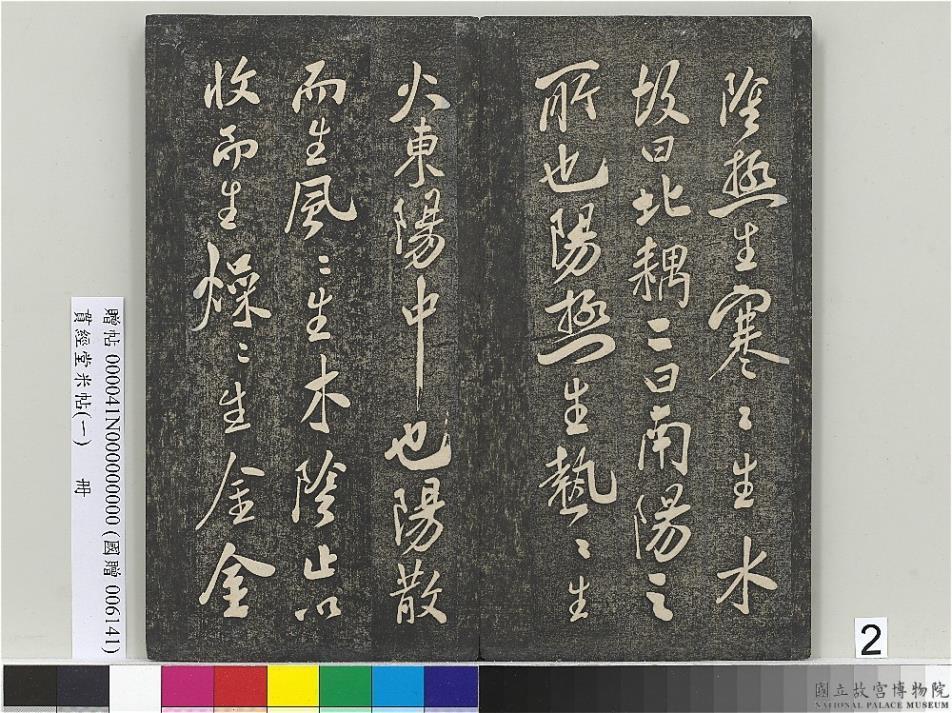 陰極生寒〻生水
故曰北耦二曰南陽之
所也陽極生熱〻生
火東陽中也陽散
而生風〻生木陰止以
收而生燥〻生金金
贈帖 000041N000000000 (國贈 006141)
貫經堂米帖(一) 冊
2
國立故宮博物院
NATIONAL PALACE MUSEUM